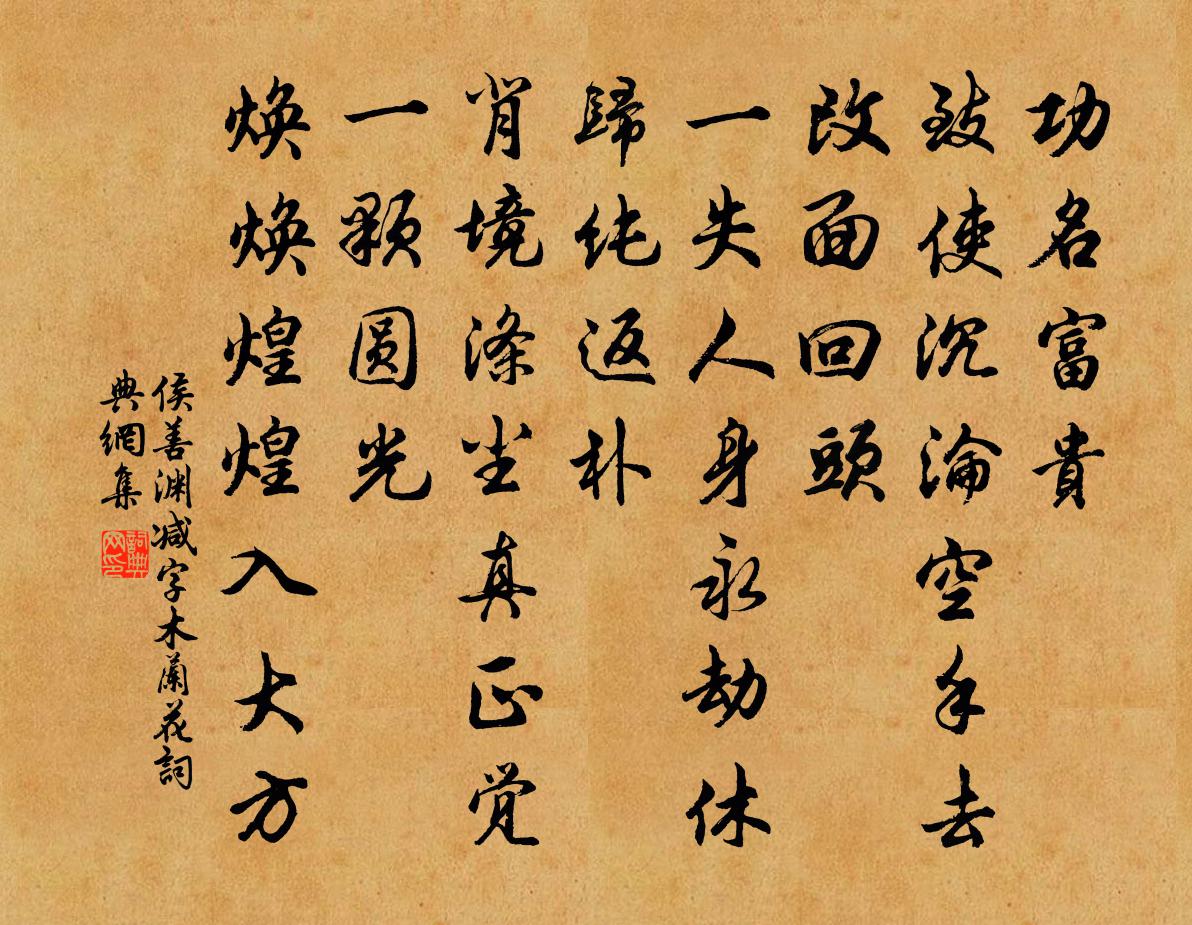 功名富貴
致使沉淪空手去
改面回頭
一失人身永劫休
歸純返朴
背境滌尘真正覚
一顆圆光
煥煥煌煌入大方
侯善渊减字木蘭花詞
典網集
詞典网印